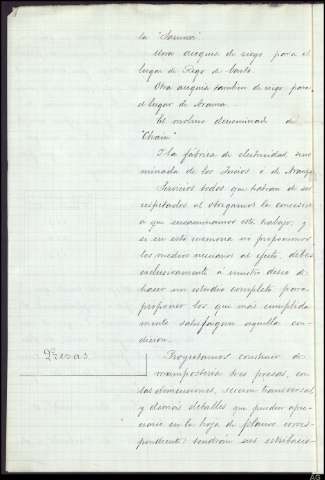 la "Sarmor"
Otra acequia de riego para el
lugar de Rego de
Otra acequia tambien de riego para
el lugar de Arama.
El molino denominado de
"Chain"
Y la fábrica de electricidad deno
minada de los Jucios, ó de Aranga
Servicios todos que habran de ser
respetados al otorgarnos la concesion
a que encaminamos este trabajo; y
si en esta memoria no proponemos
los medios necesarios al efecto, debese
exclusivamente á nuestro deseo de
hacer un estudio completo para
proponer los que mas cumplida
mente satisfagan aquella con-
dicion.
Presas
Proyectamos construir de
mampostería tres presas, cu
yas dimensiones, seccion transversal,
y demás detalles que pueden apre
ciarse en la hoja de planos corres-
pondiente: tendrán sus estribacio
AG